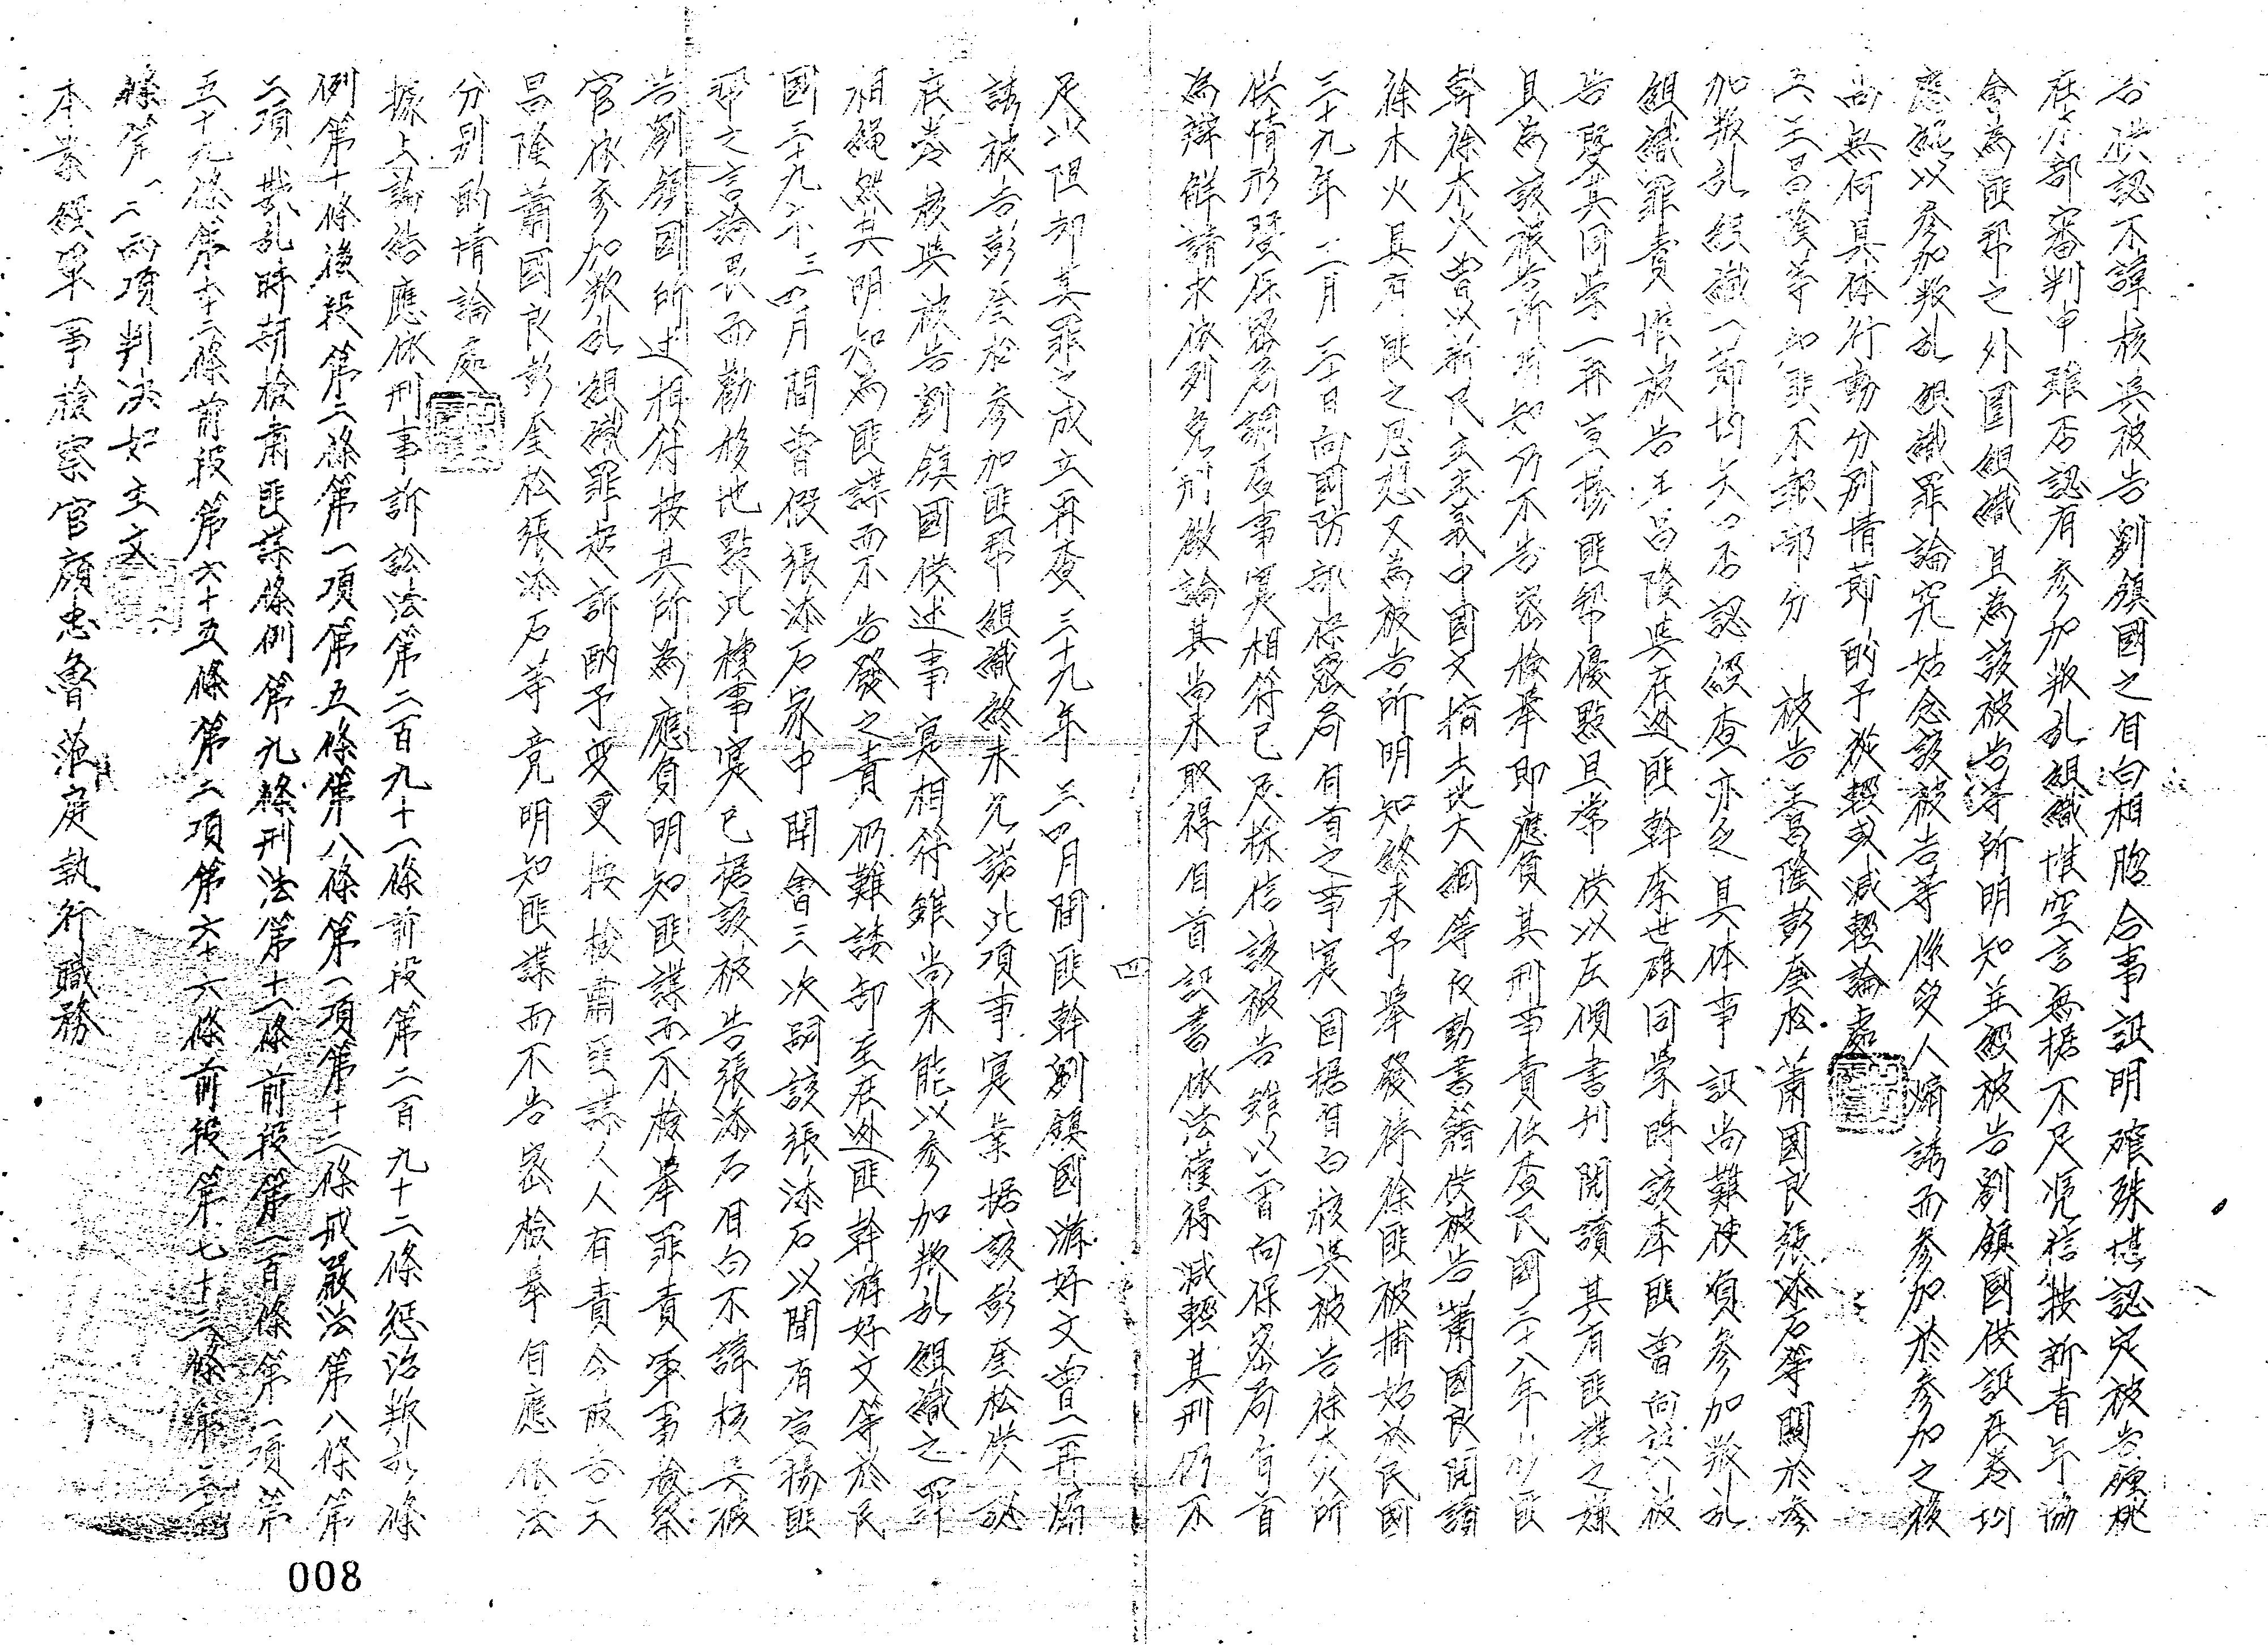 告供認不諱核與被告劉鎮國之自白相脗合事証明確殊堪認定被告纏桃
在本部審判中雖否認有參加叛乱組織惟空言無据不足憑信按新青年協
會為匪帮之外圍組織且為該被告等所明知並經被告劉鎮國供証在卷均
應組以參加叛乱組織罪論究姑念該被告等係受人煽誘而參加於參加之後
尚無何具体行動分別情節酌予從輕或減輕論處
五、王昌隆等知匪不報部分 被告王昌隆彭奎松蕭國良張添石等關於參
加叛乱組織一節均矢口否認經查亦乏具体事証尚難使負參加叛乱
組織罪責惟被告王昌隆與在逃匪幹李世雄同學時該李匪曾向該被
告暨其同學一再宣揚匪帮優點且常供以左傾書刊閱讀其有匪諜之嫌
且為該被告所明知乃不告密檢舉即應負其刑事責任查民國三十八年間匪
幹徐木火曾以新民主主義中國文摘土地大綱等反動書籍供被告蕭國良閱讀
徐木火具有匪之思想又為被告所明知終未予舉發待徐匪被捕始於民國
三十九年二月二十日向國防部保密局自首之事實固据自白核與被告徐木火所
供情形暨保密局調查事實相符已足採信該被告雖以曾向保密局自首
為辯解請求依列免刑緻論其尚未取得自首証書依法僅得減輕其刑仍不
四
足以阻却其罪之成立再查三十九年三四月間匪幹劉鎮國游好文曾一再煽
誘被告彭奎松參加匪帮組織終未允諾此項事實業据該彭奎松供認
在卷核與被告劉鎮國供述事實相符雖尚未能以參加叛乱組織之罪
相繩然其明知為匪諜而不告發之責仍難諉卸至在逃匪幹游好文等於民
國三十九年三四月間曾假張添石家中開會三次嗣該張添石以聞有宣揚匪
帮之言論畏而勸移地點此種事實已据該被告張添石自白不諱核與被
告劉鎮國所述相符按其所為應負明知匪諜而不檢舉罪責軍事檢察
官依參加叛乱組織罪起訴酌予変更 按檢肅匪諜人人有責今被告王
昌隆蕭國良彭奎松張添石等竟明知匪諜而不告密檢舉自應依法
分別酌情論處
據上論結應依刑事訴訟法第二百九十一條前段第二百九十二條惩治叛乱條
例第十條後段第二條第一項第五條第八條第一項第十二條戒嚴法第八條第
二項戡乱時期檢肅匪諜條例第九條刑法第十一條前段第一百條第一項第
五十九條第六十二條前段第六十五條第二項第六十六條前段第七十三條第三十
條第一、二兩項判決如主文
本案經軍事檢察官顏忠魯蒞庭執行職務
008